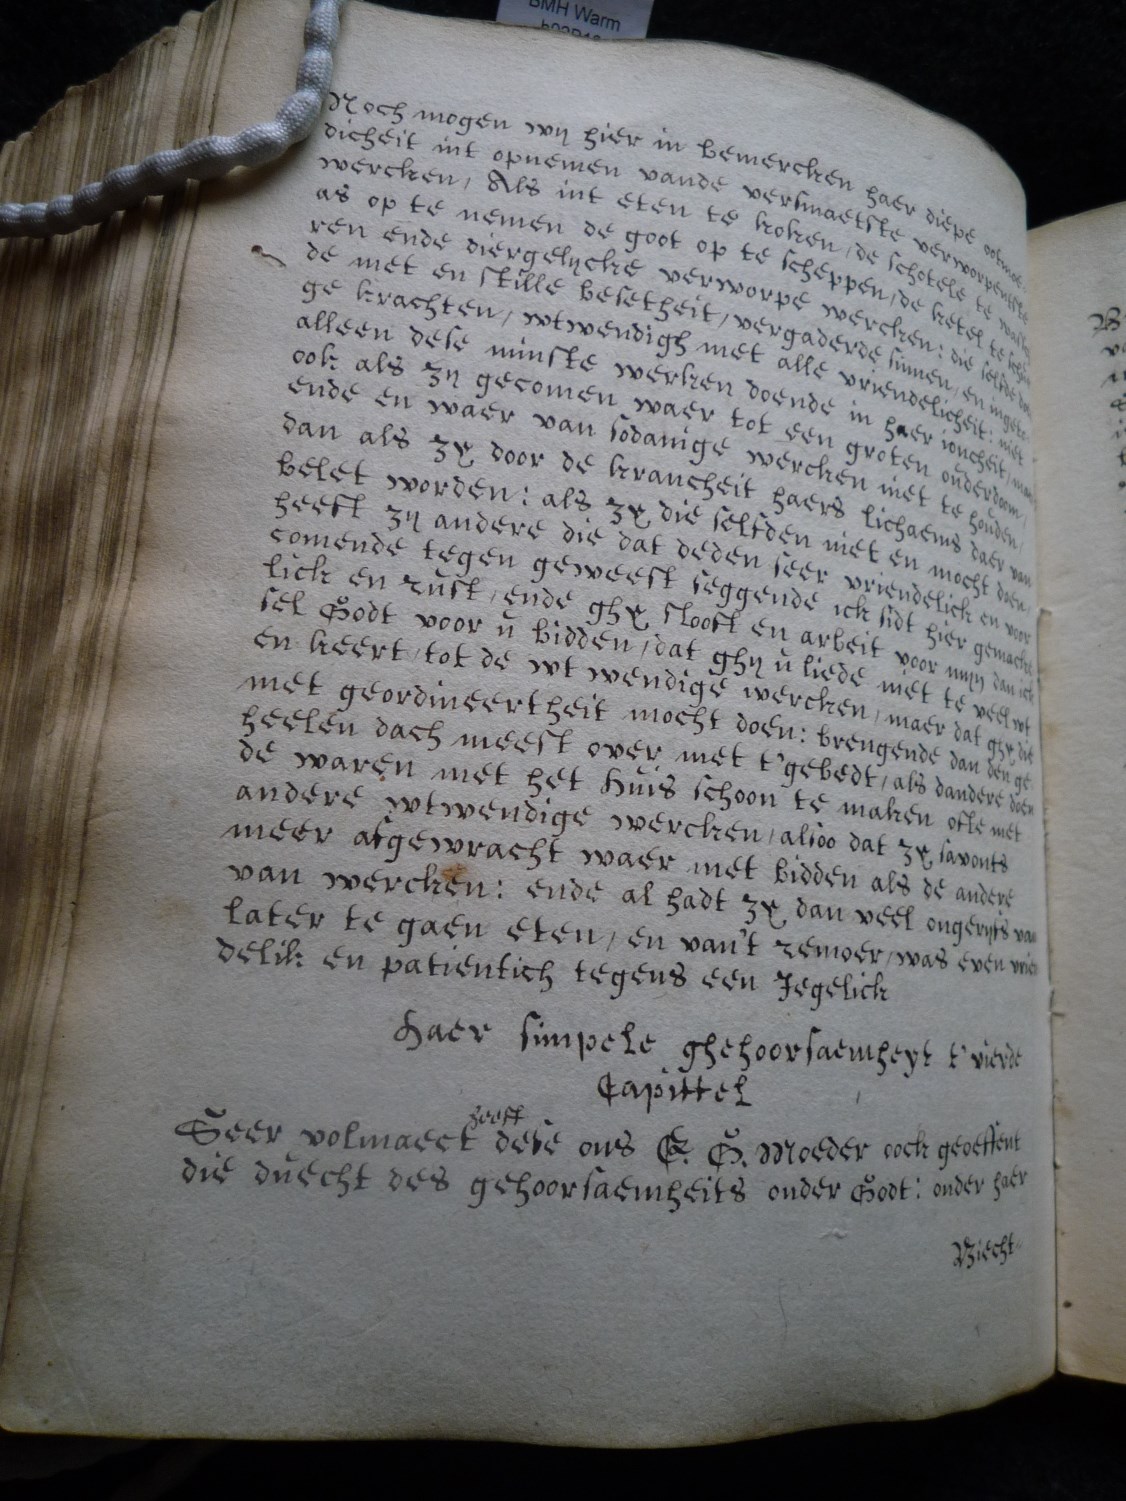 BMH Warm
Noch mogen wij hier in bemercken haer diepe ootmoe
dicheit int opnemen vande versmaetste verworpenste
wercken, Als int eten te koken, de schotele te wassen
as op te nemen de goot op te scheppen, de ketel te schu
ren ende diergelijcke verworpe wercken: die selfde doen
de met en stille besetheit, vergaderde sinnen, en ingeto
ge krachten, wtwendigh met alle vriendelicheit: niet
alleen dese minste werken doende in haer joncheit, maer
ook als zij gecomen waer tot een groten ouderdom,
ende en waer van sodanige wercken niet te houden,
dan als zy door de krancheit haers lichaems daer van
belet worden: als zy die selfden niet en mocht doen,
heeft zij andere die dat deden seer vriendelick en voor
comende tegen geweest seggende ick sidt hier gemacke
lick en rust, ende ghy slooft en arbeit voor mijn dan ick
sel Godt voor u bidden, dat ghij u liede niet te veel wt
en keert, tot de wt wendige wercken, maer dat ghy die
met geordineertheit mocht doen: brengende dan den ge
heelen dach meest over met t'gebedt, als dandere doen
de waren met het huis schoon te maken ofte met
andere wtwendige wercken, alsoo dat zy savonts
meer afgewracht waer met bidden als de andere
van wercken: ende al hadt zy dan veel ongerijfs van
later te gaen eten, en van't remoer, was even vrien
delik en patientich tegens een Jegelick
Haer simpele ghehoorsaemheyt t'vierde
Capittel
Seer volmaect heeft dese ons E. G. Moeder oock geoeffent
die duecht des gehoorsaemheits onder Godt: onder haer
Biecht